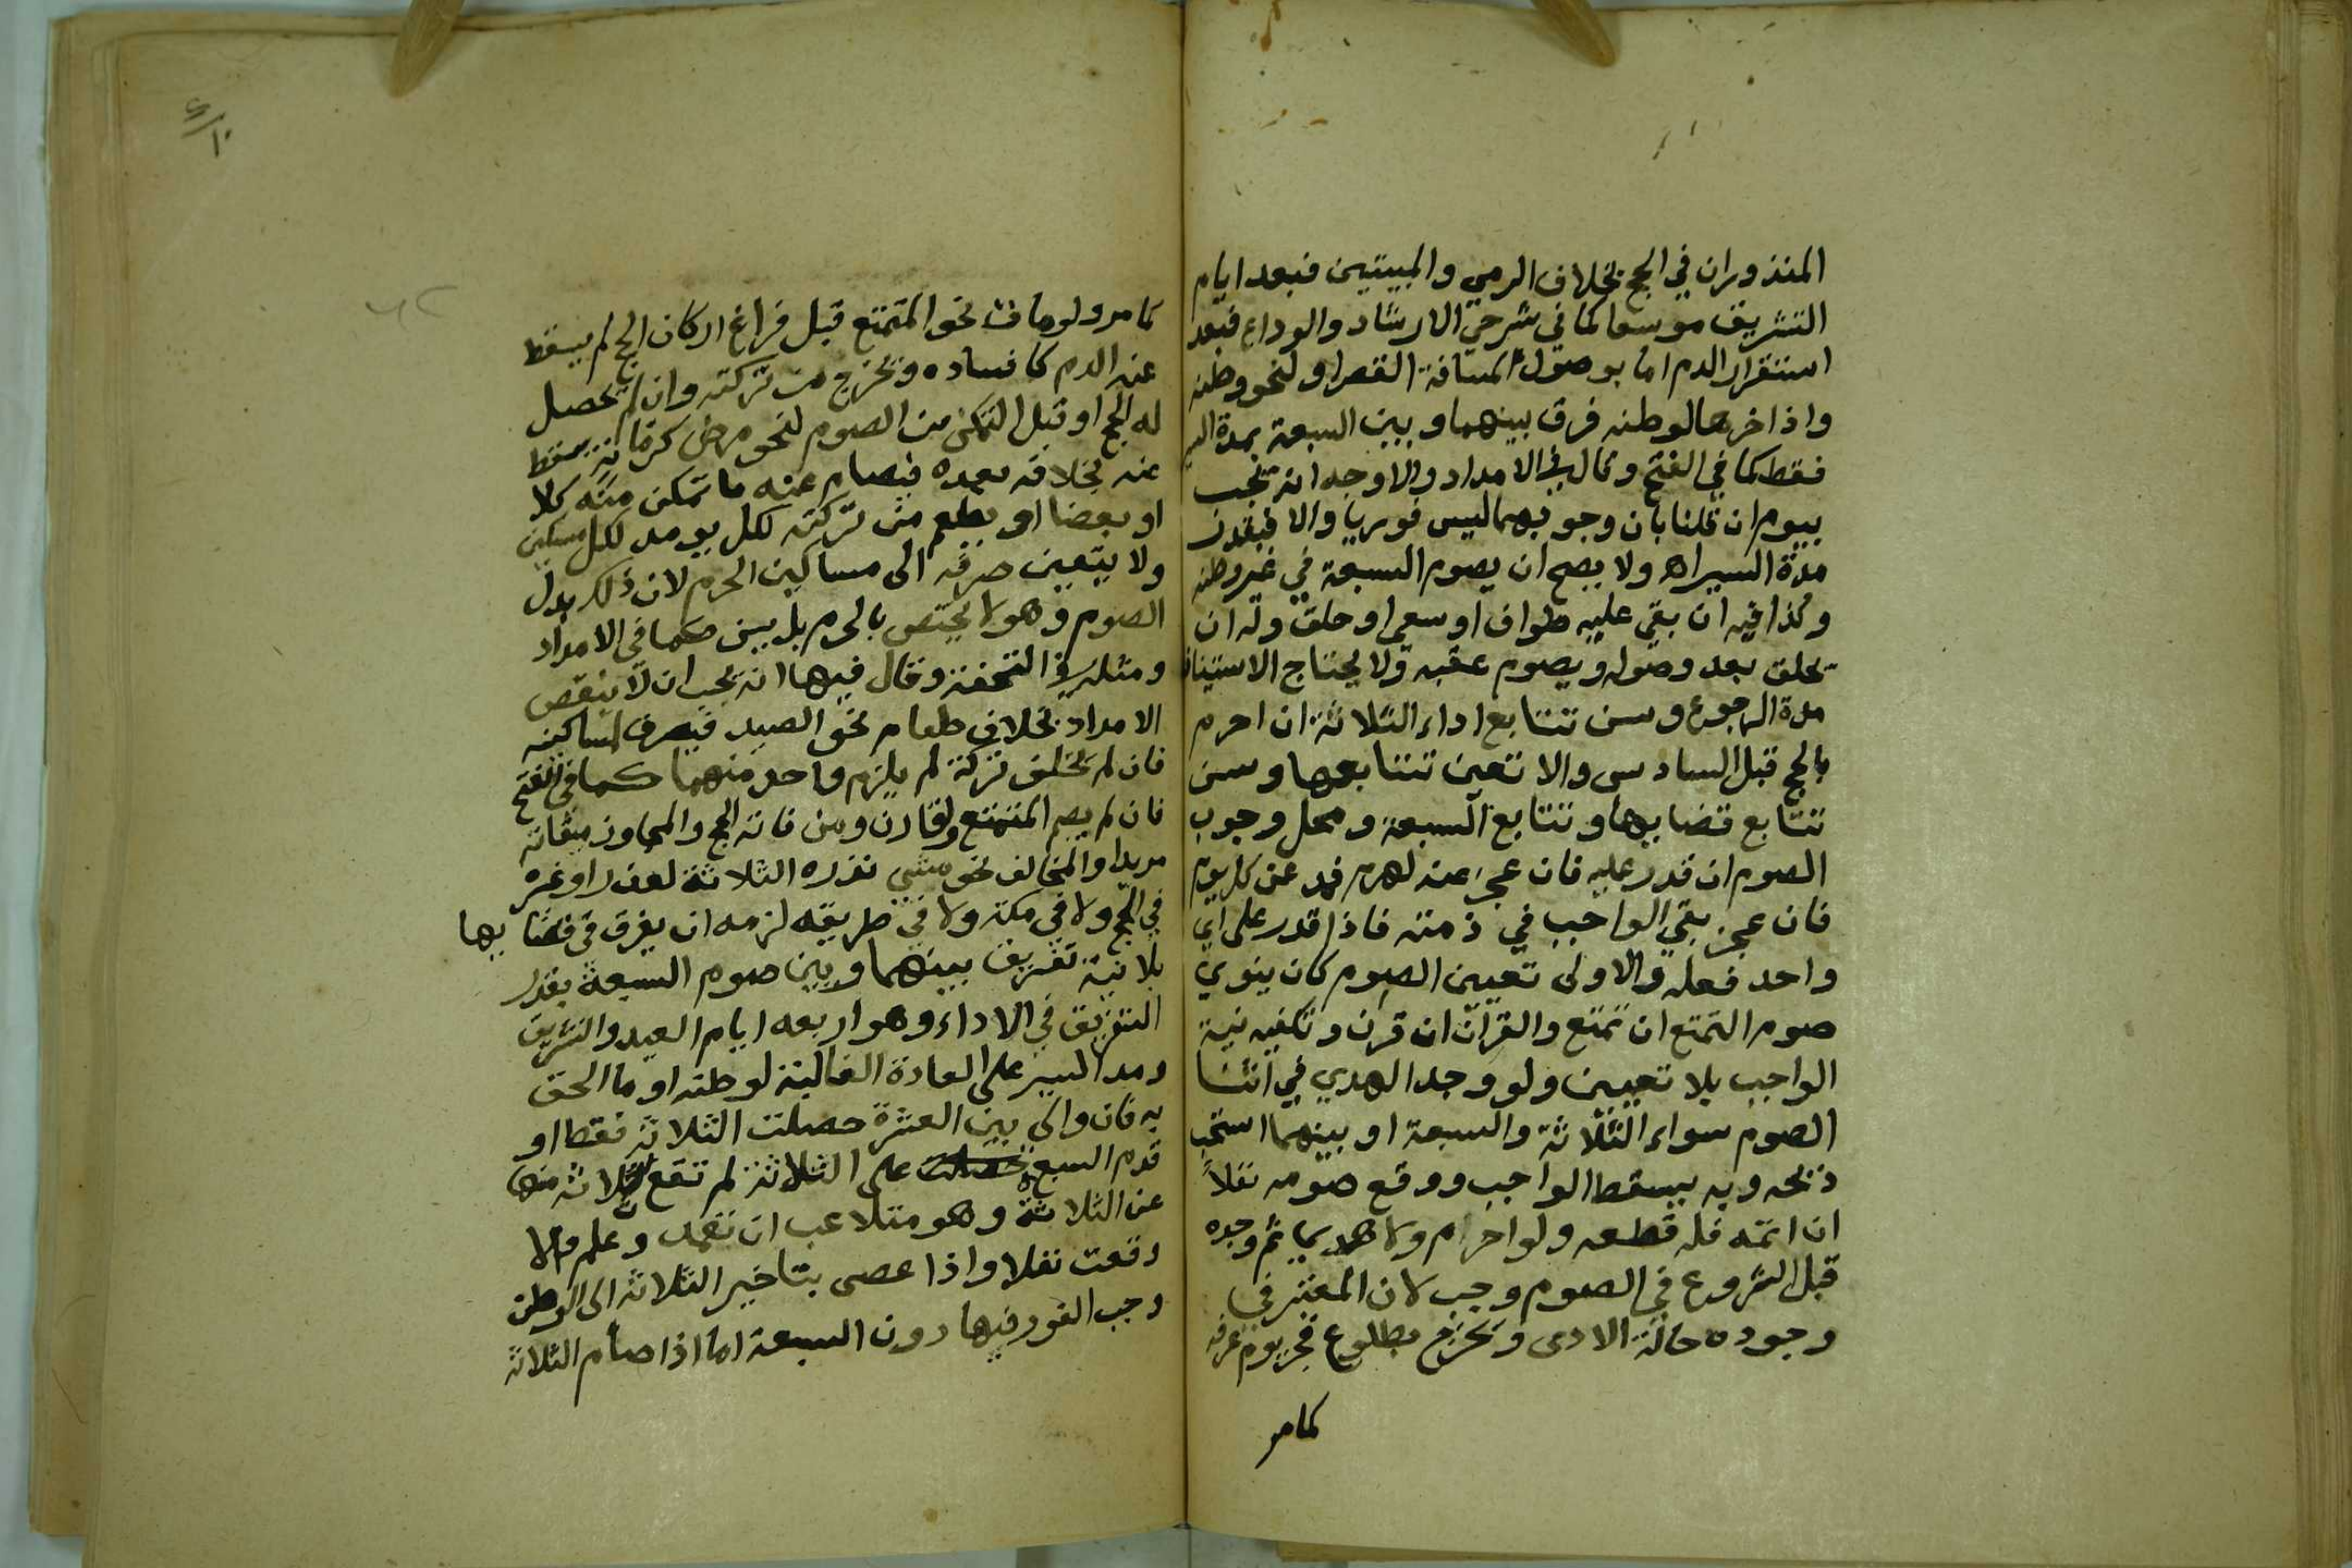 المنذوران في الحج بخلاف الرمي والمبيتين فبعد ايام
التشريق موسعا كما في شرحي الارشاد والوداع فبعد
استقرار الدم اما بوصوله لمسافة القصر او لنحو وطنه
واذا اخرها لوطنه فرق بينهما وبين السبعة بمدة السير
فقط كما في الفتح وقال في الامداد والاوجه انه يجب
بيوم ان قلنا بان وجوبهما ليس فوريا والا فبقدر
مدة السير اه ولا يصح ان يصوم السبعة في غير وطنه
وكذا فيه ان بقي عليه طواف او سعي او حلق وله ان
يحلق بعد وصوله ويصوم عقبه ولا يحتاج الاستيناف
مدة الرجوع وسن تتابع اداء الثلاثة ان احرم
بالحج قبل السادس والا تعين تتابعها وسن
تتابع قضايها وتتابع السبعة ومحل وجوب
الصوم ان قدر عليه فان عجز عنه لهرم فمد عن كل يوم
فان عجز بقي الواجب في ذمته فاذا قدر على اي
واحد فعله والاولى تعيين الصوم كان ينوي
صوم التمتع ان تمتع والقران ان قرن وتكفيه نية
الواجب بلا تعيين ولو وجد الهدي في اثنا
الصوم سواء الثلاثة والسبعة او بينهما استحب
ذبحه وبه يسقط الواجب ووقع صومه نفلاً
ان اتمه فله قطعه ولو احرم ولا هدي ثم وجده
قبل الشروع في الصوم وجب لان المعتبر في
وجوده حالة الادى ويخرج بطلوع فجر يوم عرفة
كما مر
كما مر ولو مات نحو المتمتع قبل فراغ اركان الحج لم يسقط
عنه الدم كافساده ويخرج من تركته وان لم يحصل
له الحج او قبل التمكن من الصوم لنحو مرض كرمضان يسقط
عنه بخلافه بعده فيصام عنه ما تمكن منه كلا
او بعضا او يطعم من تركته لكل يوم مد لكل مسكين
ولا يتعين صرفه الى مساكين الحرم لان ذلك بدل
الصوم وهو لا يختص بالحرم بل يسن كما في الامداد
ومثله في التحفة وقال فيها انه يجب ان لا ينقص
الامداد بخلاف طعام نحو الصيد فيصرف لمساكينه
فان لم يخلف تركة لم يلزم واحد منهما كما في الفتح
فان لم يصم المتمتع والقارن ومن فاته الحج والمجاوز ميقاته
مريدا والمخالف نحو مشي نذره الثلاثة لعذر او غيره
في الحج ولا في مكة ولا في طريقه لزمه ان يفرق في قضايها
بلا نية تفريق بينهما وبين صوم السبعة بقدر
التفريق في الاداء وهو اربعه ايام العيد والتشريق
ومد السير على العادة الغالبة لوطنه او ما الحق
به فان والى بين العشرة حصلت الثلاثة فقط او
قدم السبع على الثلاثة لم تقع ثلاثة منها
عن الثلاثة وهو متلاعب ان تعمد وعلم والا
وقعت نفلا واذا عصى بتاخير الثلاثة الى الوطن
وجب الفور فيها دون السبعة اما اذا صام الثلاثة